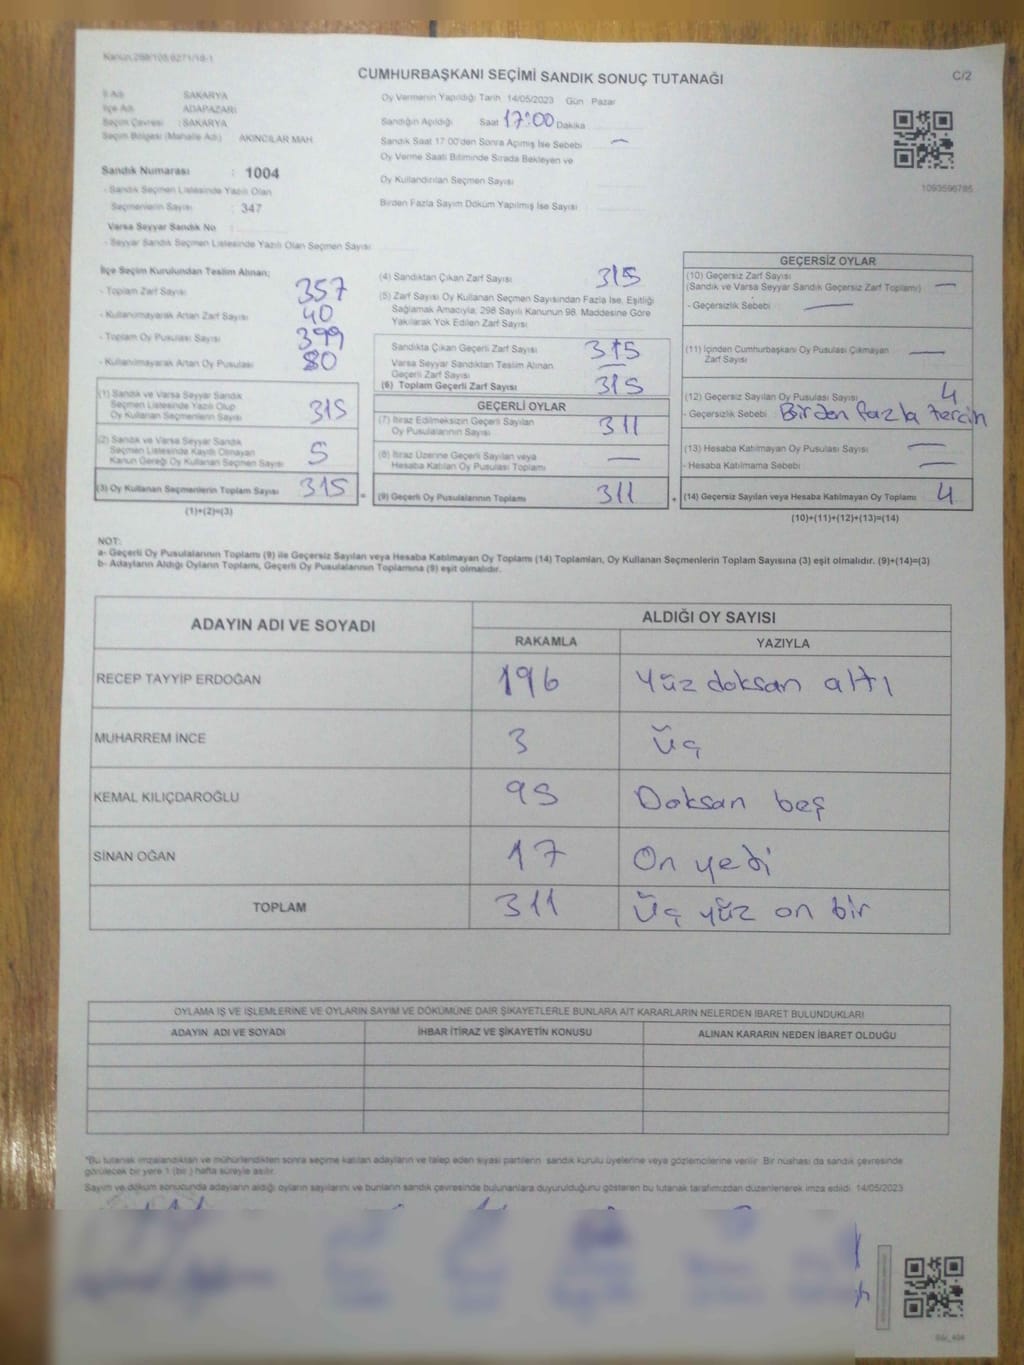 Kanun 298/105,6271/18-1
CUMHURBAŞKANI SEÇİMİ SANDIK SONUÇ TUTANAĞI
C/2
İl Adı SAKARYA
İlçe Adı ADAPAZARI
Seçim Çevresi : SAKARYA
Seçim Bölgesi (Mahalle Adı) AKINCILAR MAH
Sandık Numarası : 1004
- Sandık Seçmen Listesinde Yazılı Olan
Seçmenlerin Sayısı : 347
Varsa Seyyar Sandık No :
- Seyyar Sandık Seçmen Listesinde Yazılı Olan Seçmen Sayısı
Oy Vermenin Yapıldığı Tarih 14/05/2023 Gün Pazar
Sandığın Açıldığı Saat 17:00 Dakika
Sandık Saat 17 00'den Sonra Açımış İse Sebebi —
Oy Verme Saati Bitiminde Sırada Bekleyen ve
Oy Kullandırılan Seçmen Sayısı
Birden Fazla Sayım Döküm Yapılmış İse Sayısı
1093596785
İlçe Seçim Kurulundan Teslim Alınan;
- Toplam Zarf Sayısı 357
- Kullanılmayarak Artan Zarf Sayısı 40
- Toplam Oy Pusulası Sayısı 399
- Kullanılmayarak Artan Oy Pusulası 80
(1) Sandık ve Varsa Seyyar Sandık
Seçmen Listesinde Yazılı Olup
Oy Kullanan Seçmenlerin Sayısı 315
(2) Sandık ve Varsa Seyyar Sandık
Seçmen Listesinde Kayıtlı Olmayan
Kanun Gereği Oy Kullanan Seçmen Sayısı 5
(3) Oy Kullanan Seçmenlerin Toplam Sayısı 315
(1)+(2)=(3)
=
(4) Sandıktan Çıkan Zarf Sayısı 315
(5) Zarf Sayısı Oy Kullanan Seçmen Sayısından Fazla İse, Eşitliği
Sağlamak Amacıyla, 298 Sayılı Kanunun 98. Maddesine Göre
Yakılarak Yok Edilen Zarf Sayısı
Sandıkta Çıkan Geçerli Zarf Sayısı 315
Varsa Seyyar Sandıktan Teslim Alınan
Geçerli Zarf Sayısı —
(6) Toplam Geçerli Zarf Sayısı 315
GEÇERLİ OYLAR
(7) İtiraz Edilmeksizin Geçerli Sayılan
Oy Pusulalarının Sayısı 311
(8) İtiraz Üzerine Geçerli Sayılan veya
Hesaba Katılan Oy Pusulası Toplamı —
(9) Geçerli Oy Pusulalarının Toplamı 311
+
GEÇERSİZ OYLAR
(10) Geçersiz Zarf Sayısı
(Sandık ve Varsa Seyyar Sandık Geçersiz Zarf Toplamı) —
- Geçersizlik Sebebi : —
(11) İçinden Cumhurbaşkanı Oy Pusulası Çıkmayan
Zarf Sayısı —
(12) Geçersiz Sayılan Oy Pusulası Sayısı 4
- Geçersizlik Sebebi Birden fazla tercih
(13) Hesaba Katılmayan Oy Pusulası Sayısı —
- Hesaba Katılmama Sebebi —
(14) Geçersiz Sayılan veya Hesaba Katılmayan Oy Toplamı 4
(10)+(11)+(12)+(13)=(14)
NOT:
a- Geçerli Oy Pusulalarının Toplamı (9) ile Geçersiz Sayılan veya Hesaba Katılmayan Oy Toplamı (14) Toplamları, Oy Kullanan Seçmenlerin Toplam Sayısına (3) eşit olmalıdır. (9)+(14)=(3)
b- Adayların Aldığı Oyların Toplamı, Geçerli Oy Pusulalarının Toplamına (9) eşit olmalıdır.
ADAYIN ADI VE SOYADI
ALDIĞI OY SAYISI
RAKAMLA YAZIYLA
RECEP TAYYİP ERDOĞAN 196 Yüz doksan altı
MUHARREM İNCE 3 Üç
KEMAL KILIÇDAROĞLU 95 Doksan beş
SİNAN OĞAN 17 On yedi
TOPLAM 311 Üç yüz on bir
OYLAMA İŞ VE İŞLEMLERİNE VE OYLARIN SAYIM VE DÖKÜMÜNE DAİR ŞİKAYETLERLE BUNLARA AİT KARARLARIN NELERDEN İBARET BULUNDUKLARI
ADAYIN ADI VE SOYADI İHBAR İTİRAZ VE ŞİKAYETİN KONUSU ALINAN KARARIN NEDEN İBARET OLDUĞU
*Bu tutanak imzalandıktan ve mühürlendikten sonra seçime katılan adayların ve talep eden siyasi partilerin sandık kurulu üyelerine veya gözlemcilerine verilir. Bir nüshası da sandık çevresinde
görülecek bir yere 1 (bir ) hafta süreyle asılır.
Sayım ve döküm sonucunda adayların aldığı oyların sayılarını ve bunların sandık çevresinde bulunanlara duyurulduğunu gösteren bu tutanak tarafımızdan düzenlenerek imza edildi. 14/05/2023